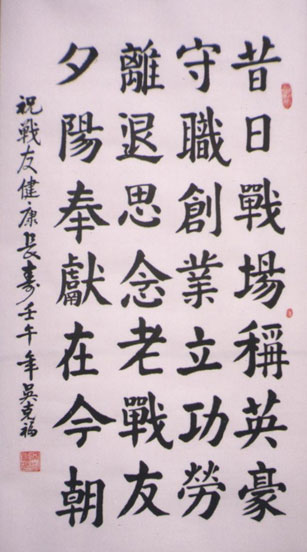 昔日戰場稱英豪
守職創業立功勞
離退思念老戰友
夕陽奉獻在今朝
祝戰友健康長壽壬午年吳克福